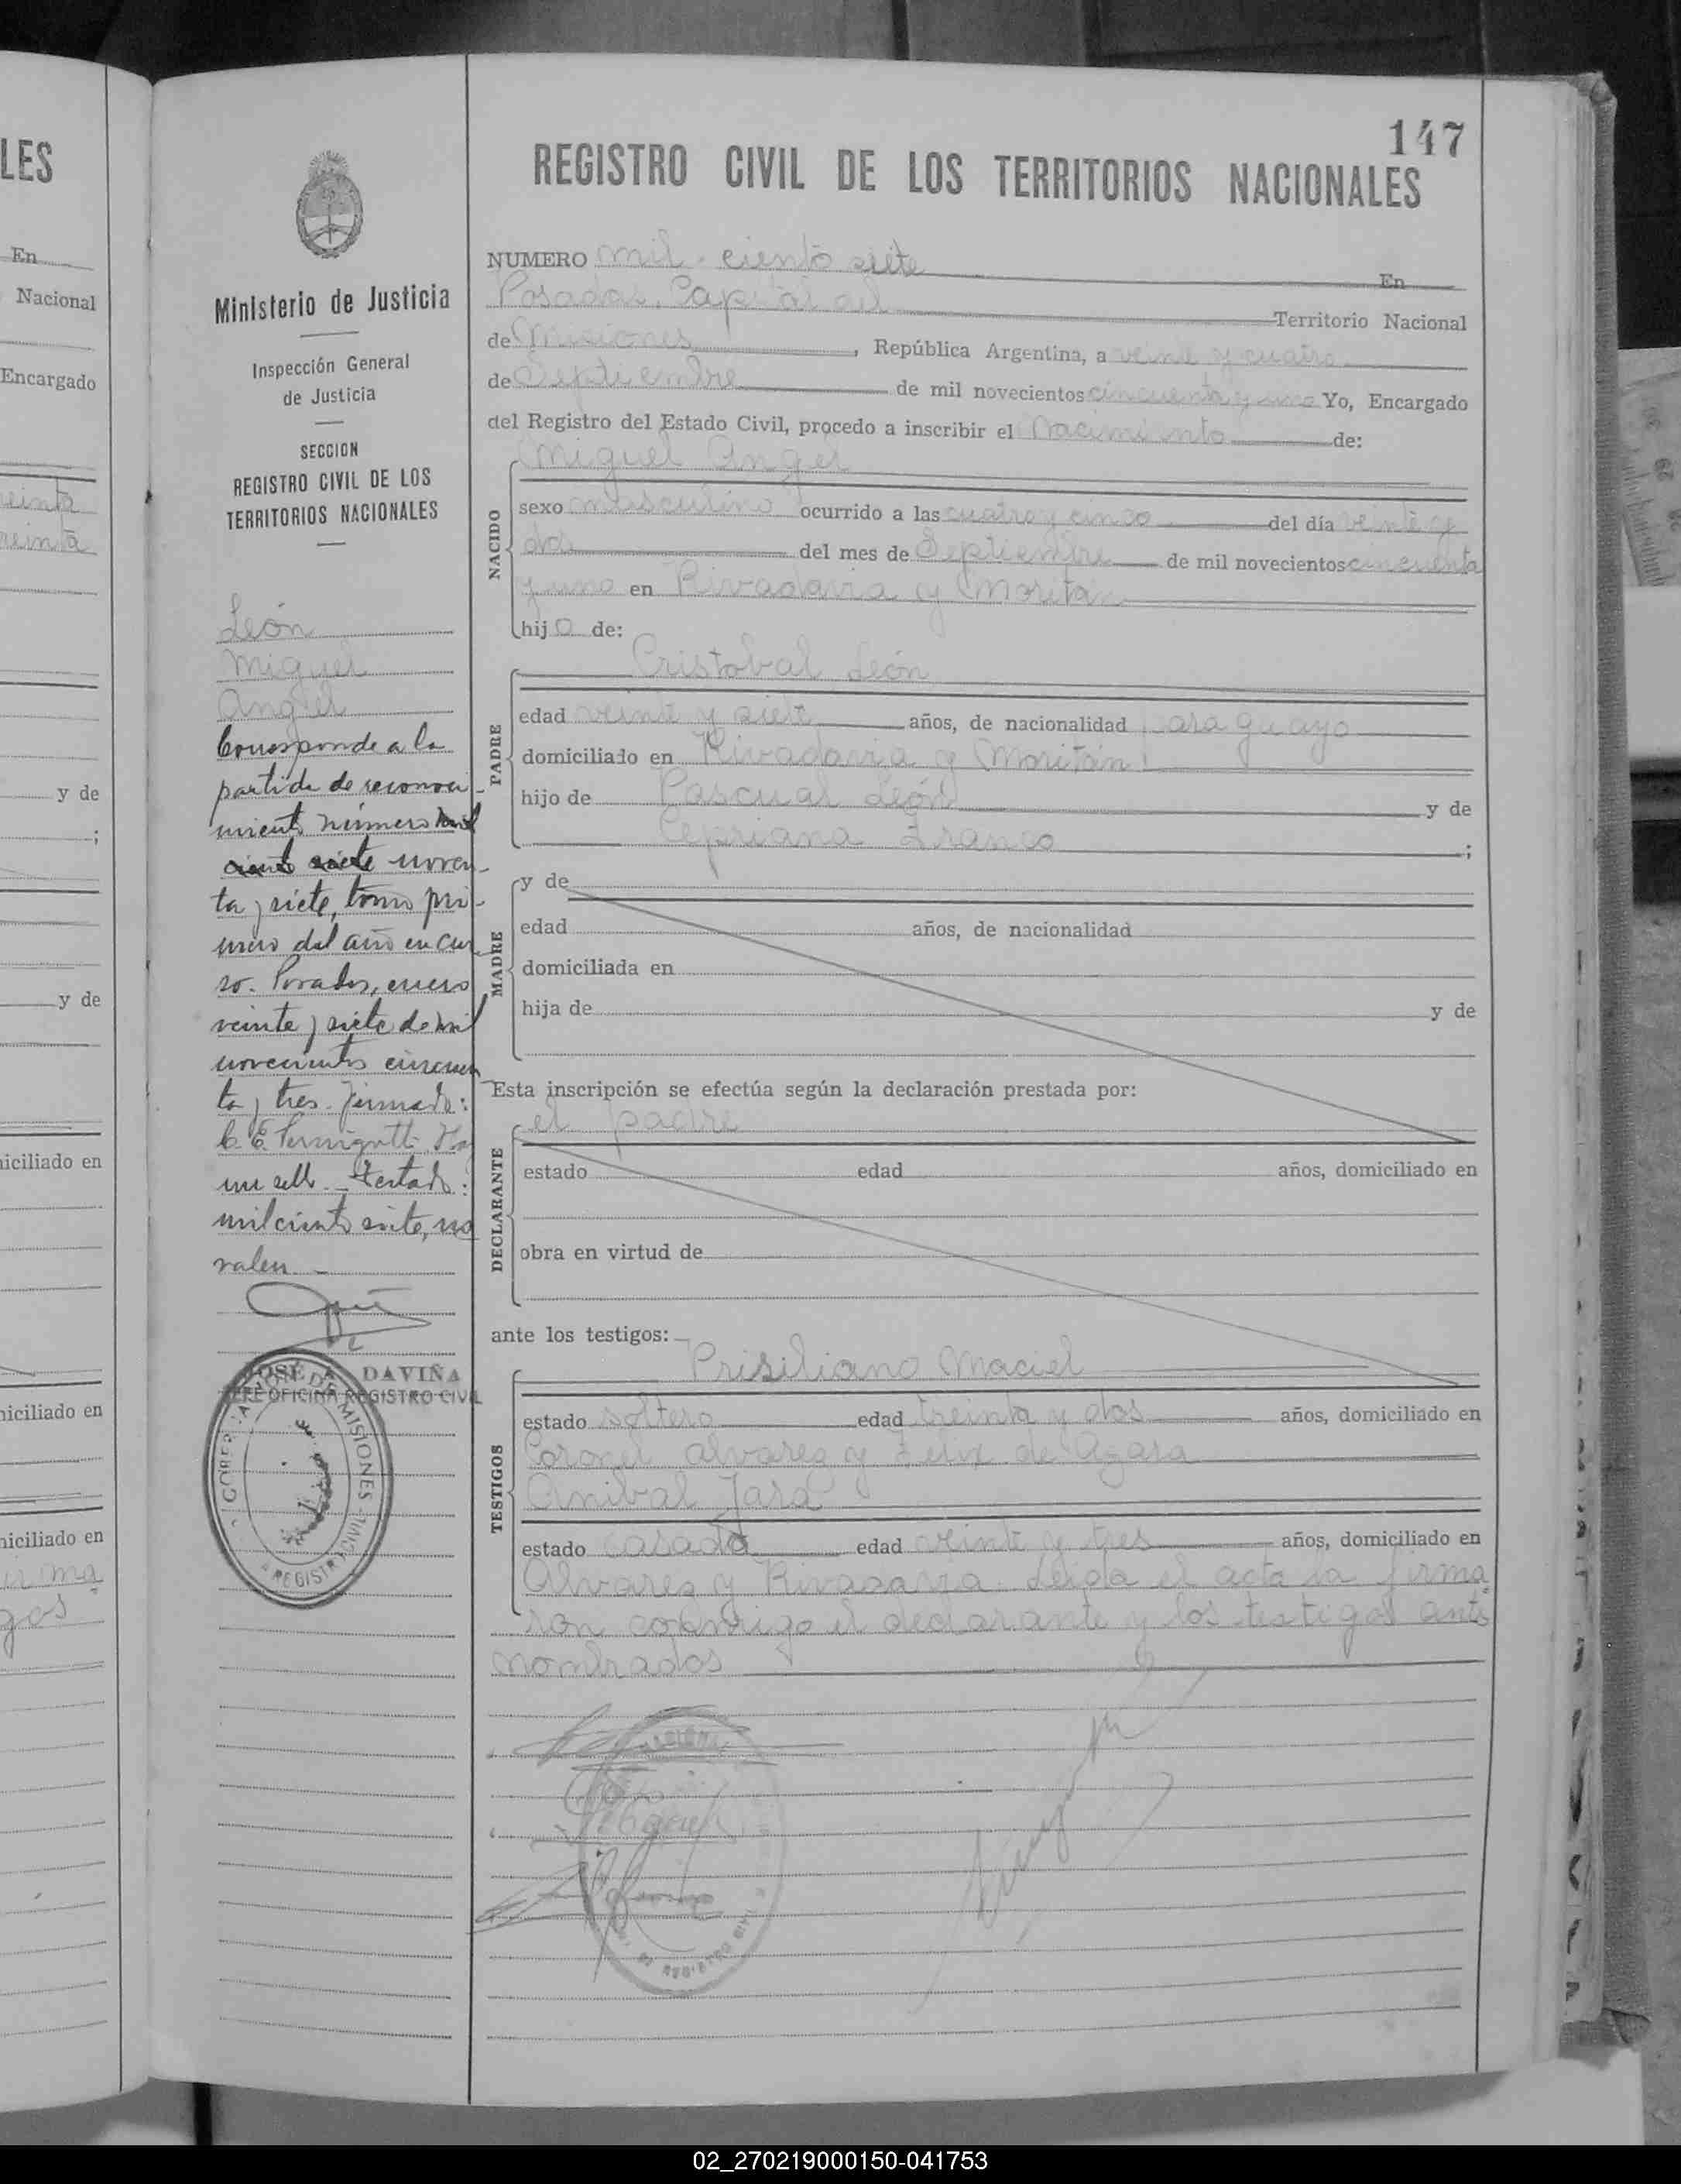 LES
En
Nacional
Encargado
reinta
reinta
y de
;
y de
niciliado en
niciliado en
niciliado en
gos
147
REGISTRO CIVIL DE LOS TERRITORIOS NACIONALES
Ministerio de Justicia
Inspección General
de Justicia
SECCION
REGISTRO CIVIL DE LOS
TERRITORIOS NACIONALES
León
Miguel
Angel
Corresponde a la
partida de reconoci-
miento número mil
ciento siete noven-
ta y siete, tomo pri-
mero del año en cur
so. Posadas, enero
veinte y siete de mil
novecientos cincuen
ta y tres. Firmado:
un sello. Testado:
mil ciento siete, no
valen.
JOSÉ A. DAVIÑA
JEFE OFICINA REGISTRO CIVIL
GOBERNACION DE MISIONES
REGISTRO CIVIL
NUMERO mil ciento siete En
Posadas, Capital del Territorio Nacional
de Misiones, República Argentina, a veinte y cuatro
de Septiembre de mil novecientos cincuenta y uno Yo, Encargado
del Registro del Estado Civil, procedo a inscribir el Nacimiento de:
NACIDO
Miguel Angel
sexo masculino ocurrido a las cuatro y cinco del día veinte y
dos del mes de Septiembre de mil novecientos cincuenta
y uno en Rivadavia y Moritán
hijo de:
PADRE
Cristobal León
edad veinte y siete años, de nacionalidad paraguayo
domiciliado en Rivadavia y Moritán
hijo de Pascual León y de
Cepriana Franco ;
MADRE
y de
edad años, de nacionalidad
domiciliada en
hija de y de
Esta inscripción se efectúa según la declaración prestada por:
DECLARANTE
el padre
estado edad años, domiciliado en
obra en virtud de
ante los testigos:
TESTIGOS
Prisiliano Maciel
estado soltero edad treinta y dos años, domiciliado en
Coronel Alvarez y Felix de Azara
Anibal Jara
estado casado edad veinte y tres años, domiciliado en
Alvarez y Rivadavia. Leida el acta la firma
ron conmigo el declarante y los testigos ante
nombrados
NACIONAL
REGISTRO CIVIL
02_270219000150-041753